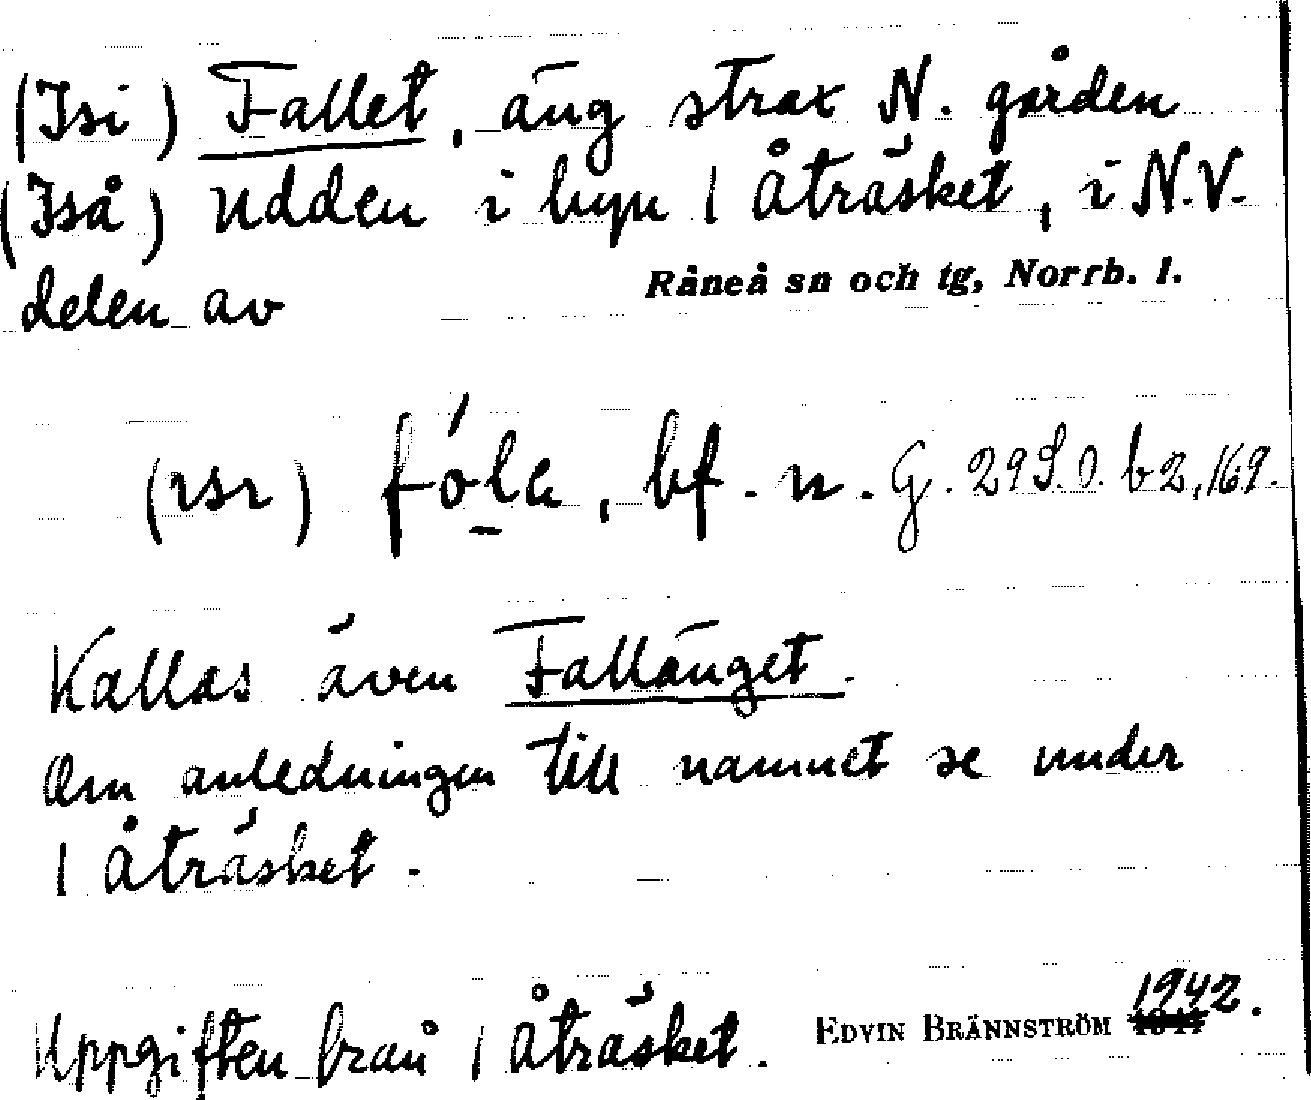 (Isi) Fallet, äng strax N. gården
(Iså) Udden i byn 1 Åträsket, i N.V.
delen av Råneå sn och tg, Norrb. l.
(rsr) fólα, bf. n. G. 29 S.O. b2, 169.
Kallas även Fallänget.
Om anledningen till namnet se under
1 Åträsket.
Uppgiften från 1 Åträsket. EDVIN BRÄNNSTRÖM 1942.